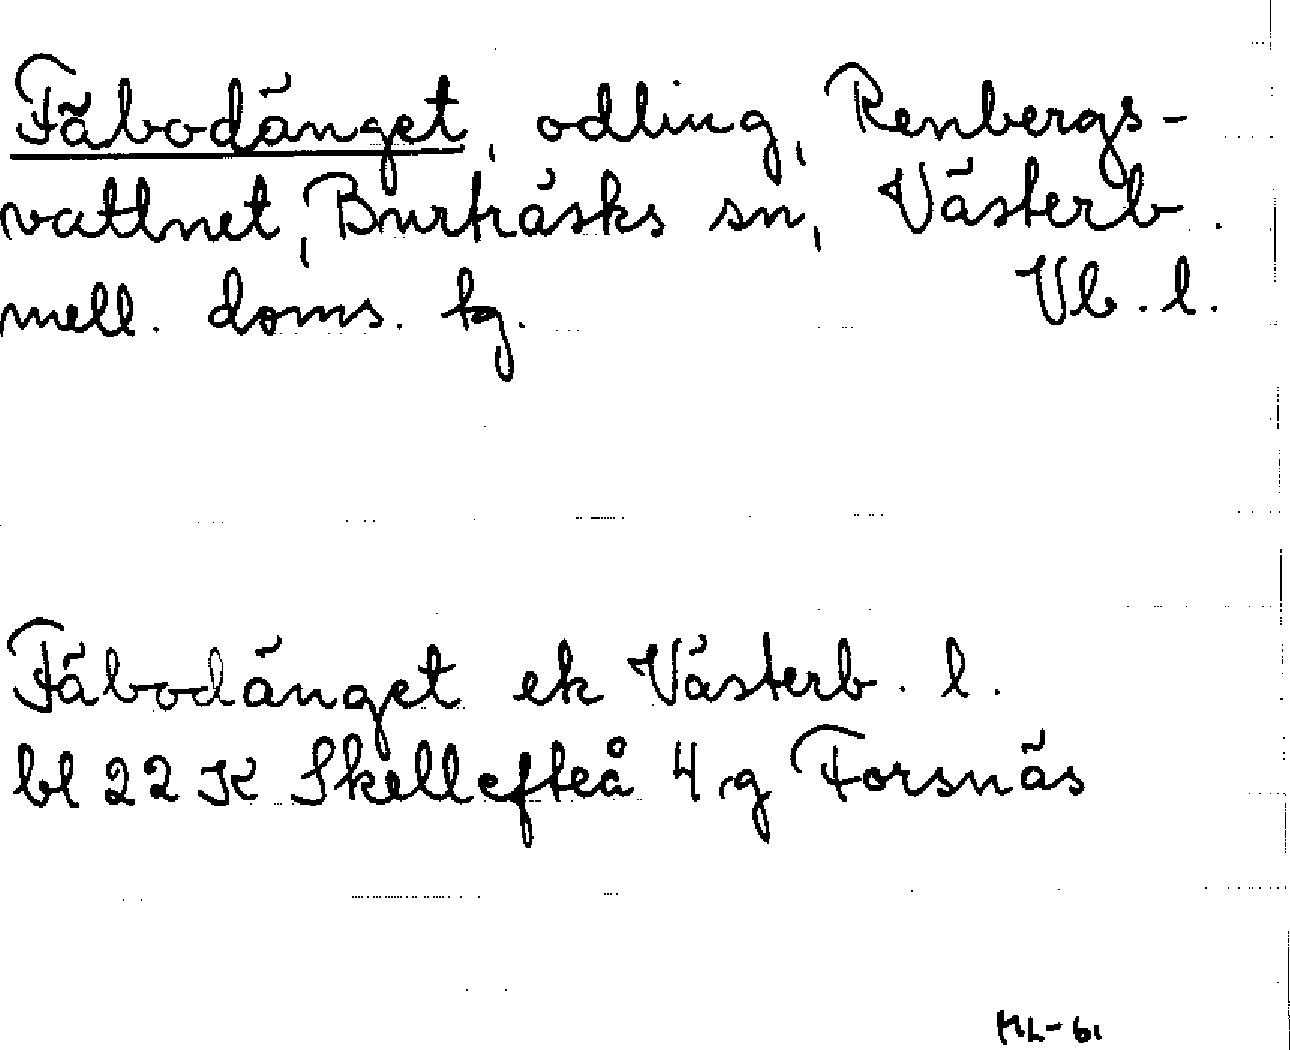 Fäbodänget, odling, Renbergs-
vattnet, Burträsks sn, Västerb.
mell. doms. tg. Vb. l.
Fäbodänget ek Västerb. l.
bl 22 K Skellefteå 4 g Forsnäs
ML-61